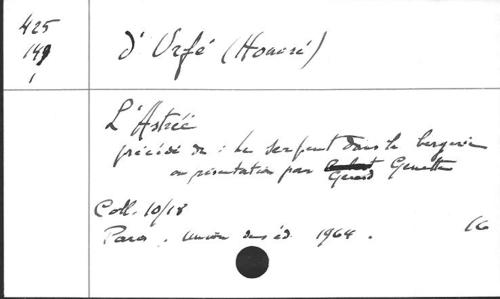 425
149
1
d'Urfé (Honoré)
L'Astrée
précédé de : Le serpent dans la bergerie
ou présentation par Gérard Genette
Coll. 10/18
Paris. Union des éd. 1964.
16